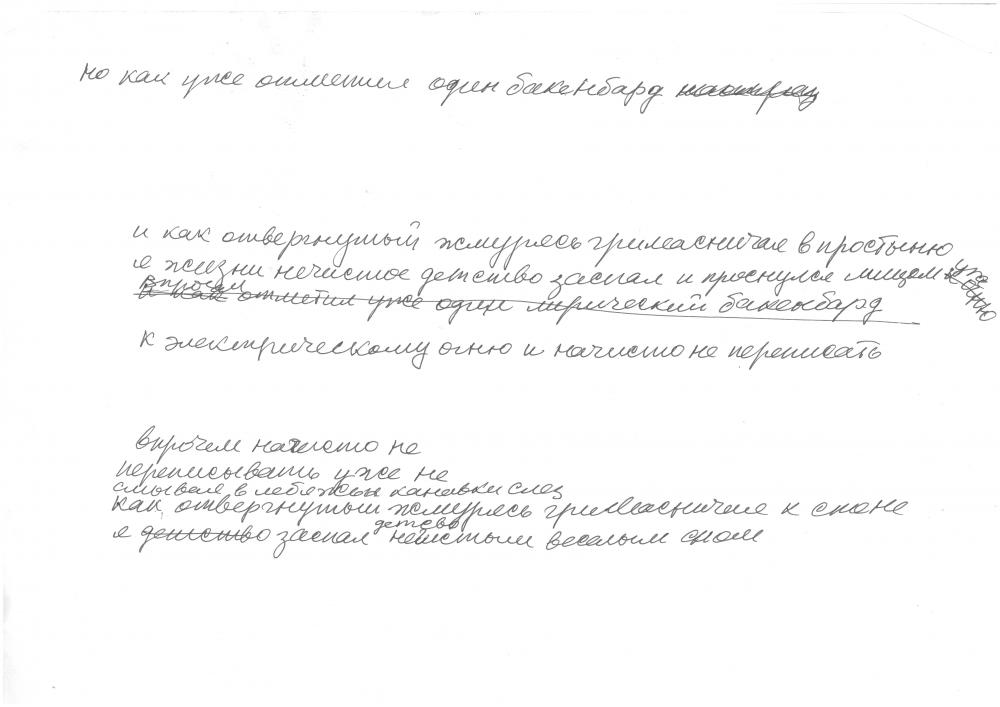 но как уже отметил один бакенбард
и как отвергнутый жмурясь гримасничая в простыню
я жизни нечистое детство заспал и проснулся лицом уже к огню
впрочем
и как отметил уже один лирический бакенбард
к электрическому огню и начисто не переписать
впрочем начисто не
переписывать уже не
смывая в лебяжьи канавки слез
как отвергнутый жмурясь гримасничая к спине
детство
я детство заспал нечистым веселым сном